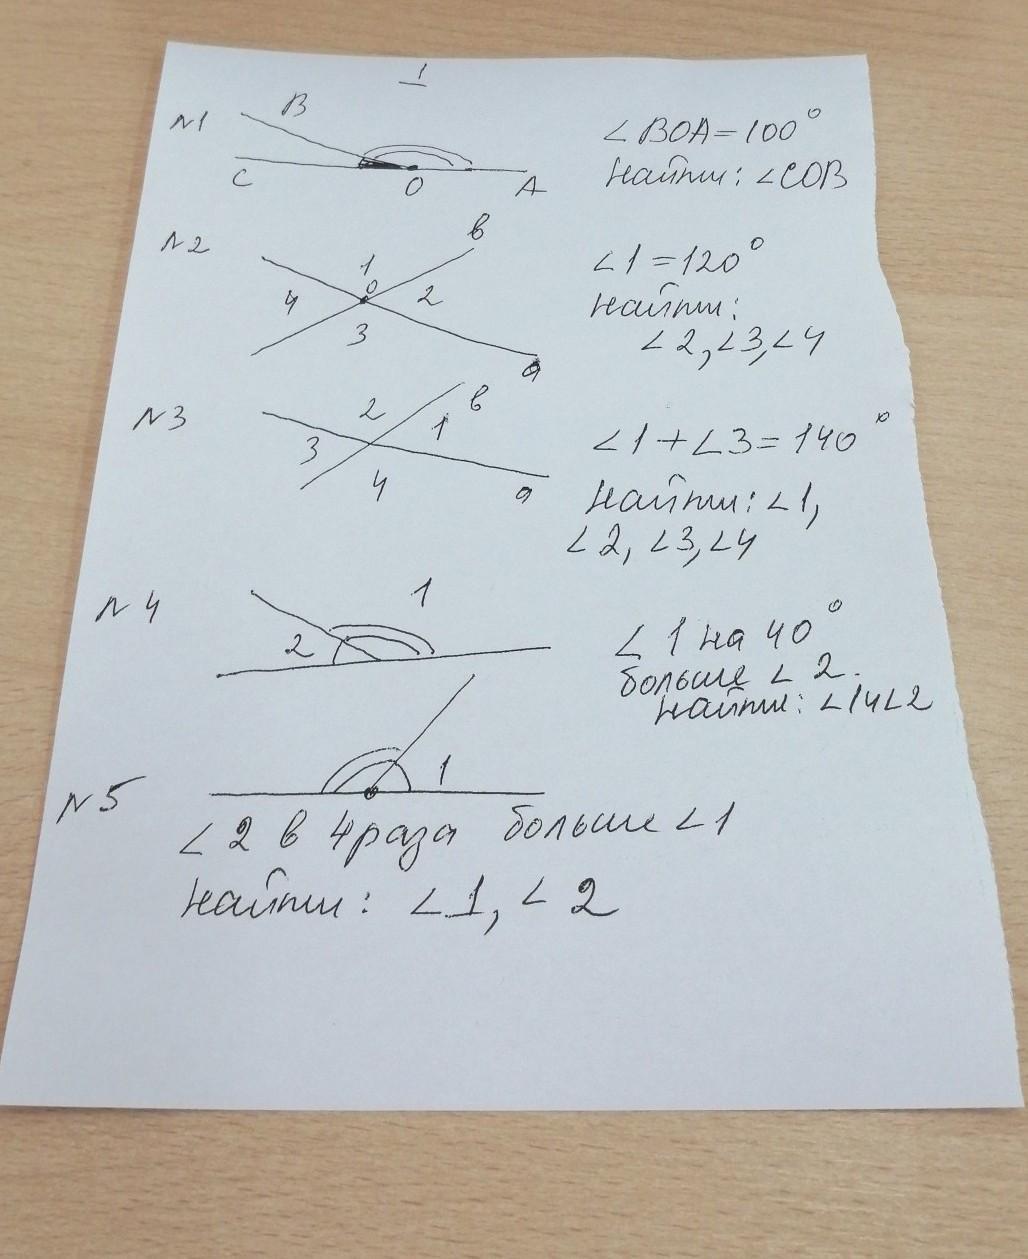 1
N1
B
C
O
A
∠BOA=100°
Найти: ∠COB
N2
1
в
4
o
2
3
a
∠1=120°
Найти:
∠2,∠3,∠4
N3
2
в
1
3
4
a
∠1+∠3=140°
Найти: ∠1,
∠2, ∠3,∠4
N4
1
2
∠1 на 40°
больше ∠2.
Найти: ∠1и∠2
N5
1
∠2 в 4 раза больше ∠1
Найти: ∠1, ∠2